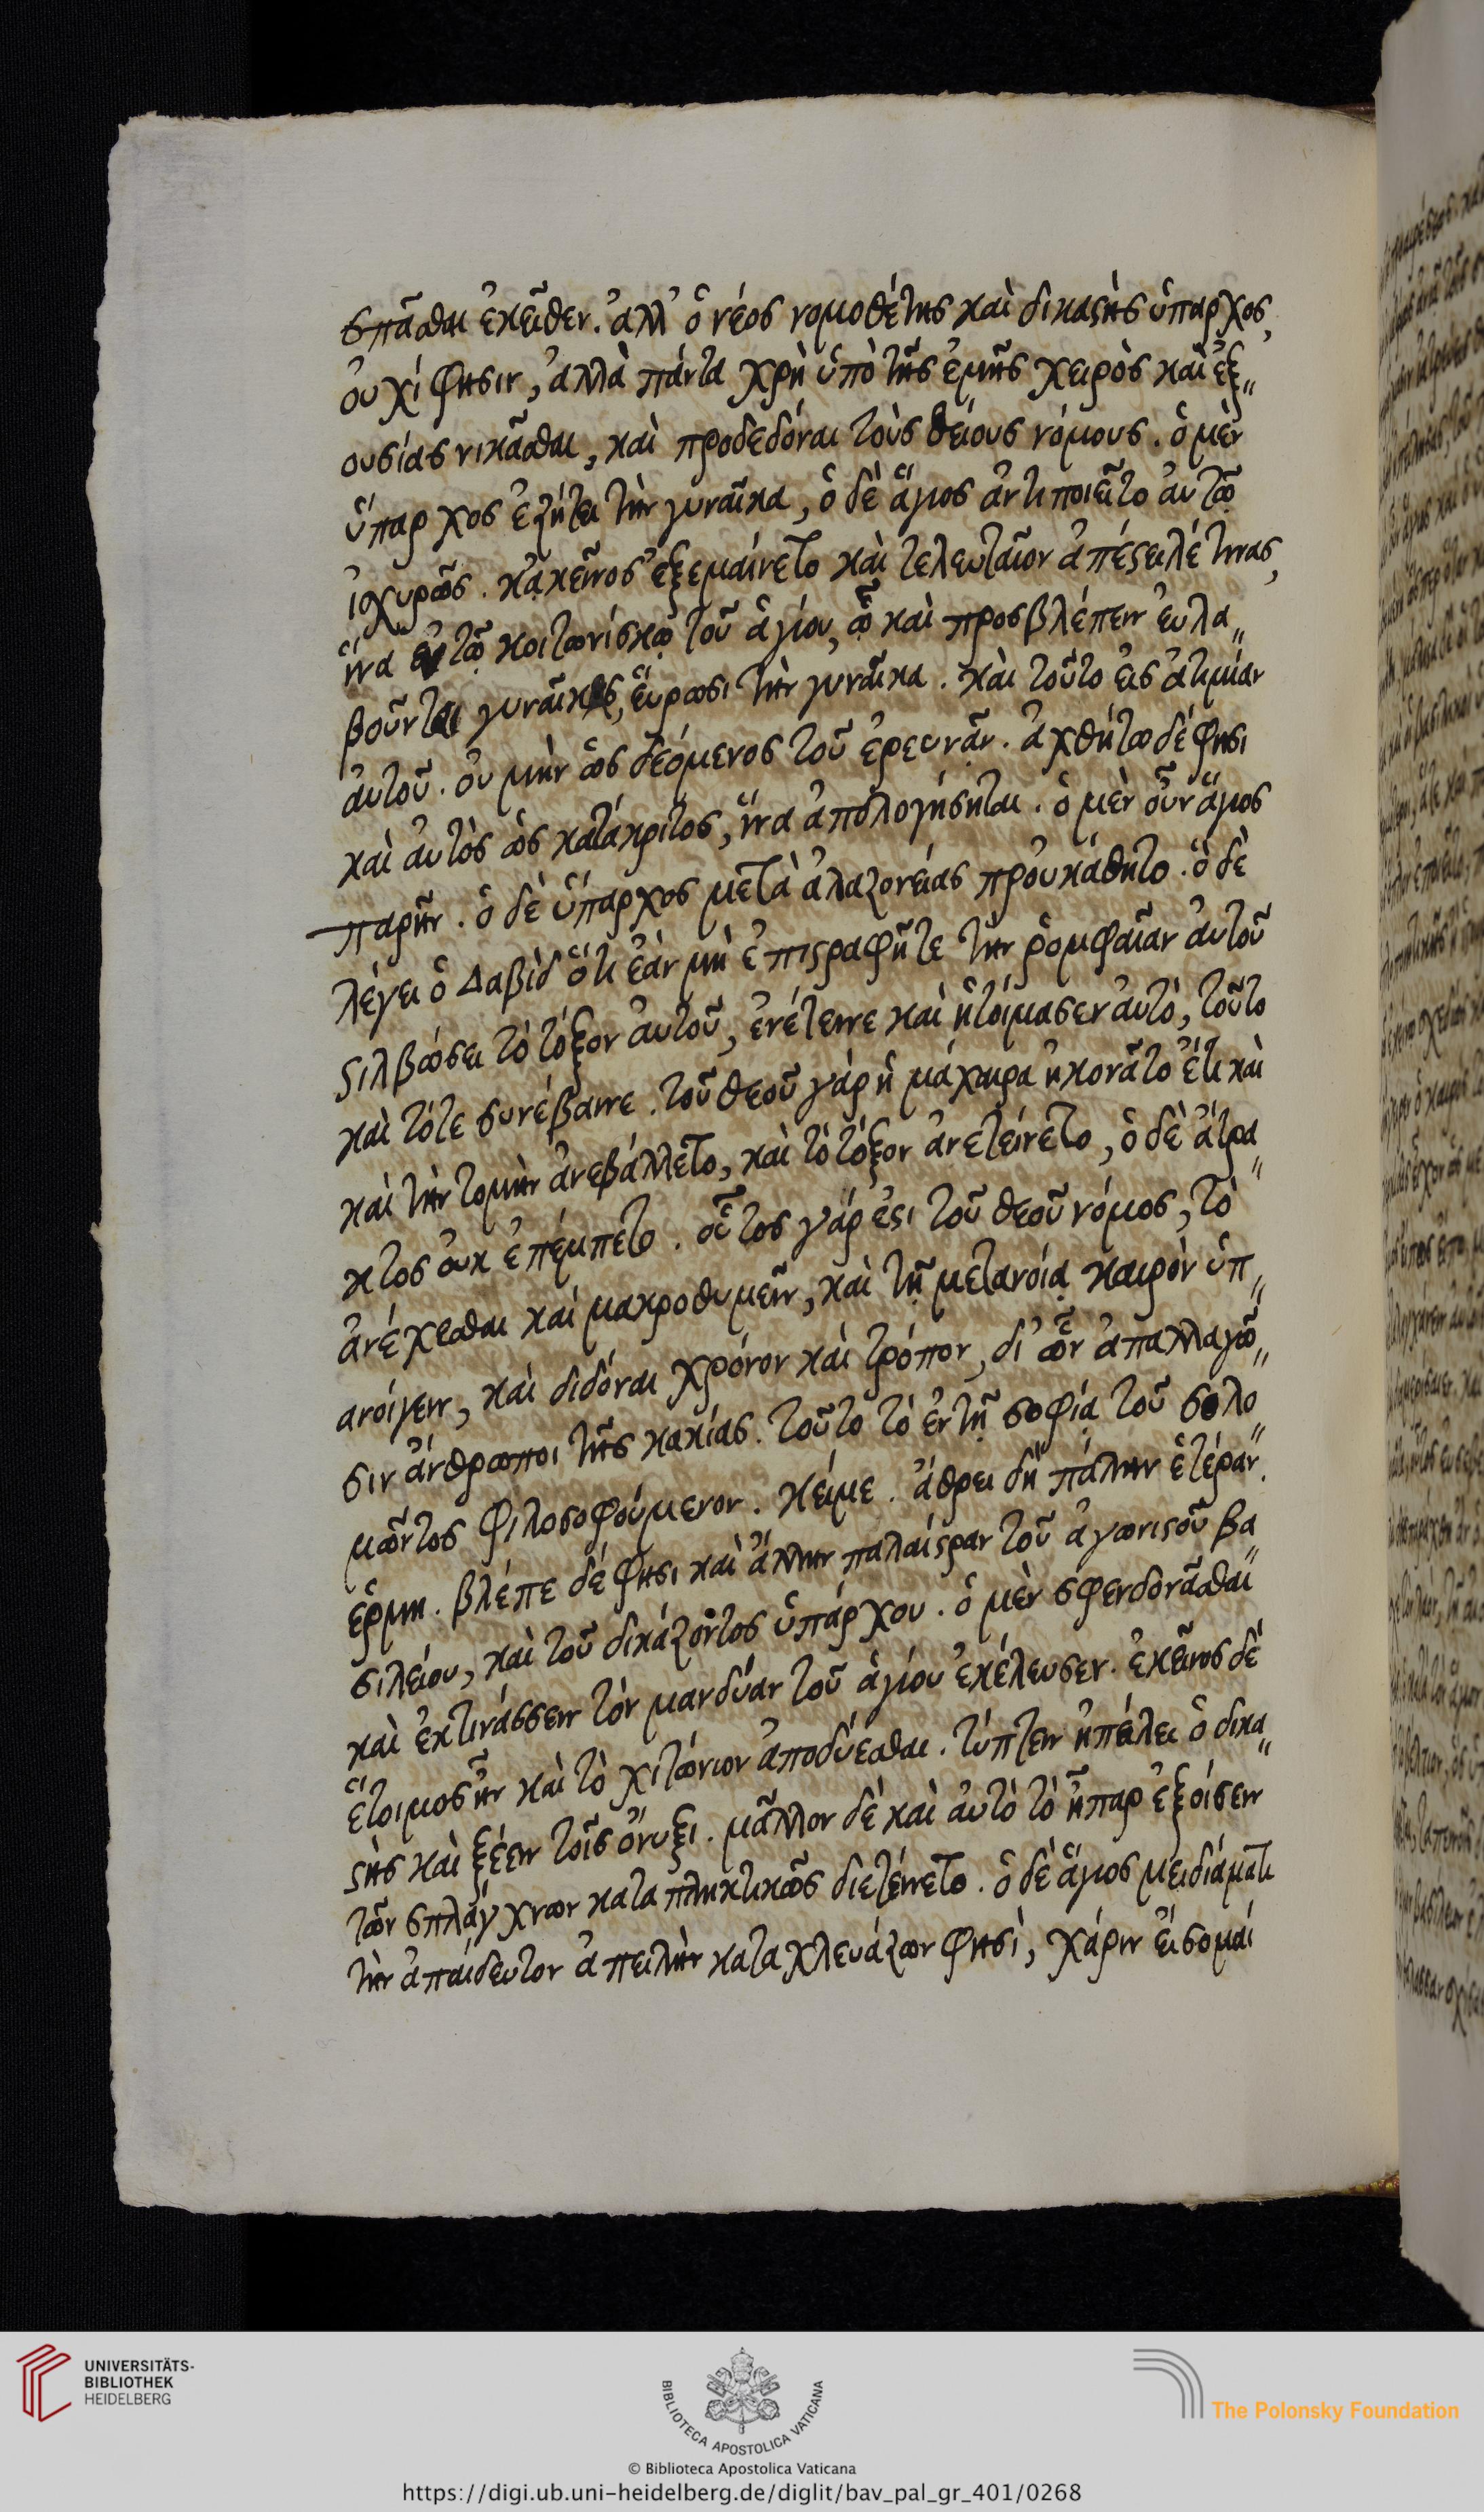 σπᾶσθαι ἐκεῖθεν. ἀλλ' ὁ νέος νομοθέτης καὶ δικαστὴς ὕπαρχος,
οὐχί φησιν, ἀλλὰ πάντα χρὴ ὑπὸ τῆς ἐμῆς χειρὸς καὶ ἐξ„
ουσίας νικᾶσθαι, καὶ προδεδόναι τοὺς θείους νόμους. ὁ μὲν
ὕπαρχος ἐζήτει τὴν γυναῖκα, ὁ δὲ ἅγιος ἀντιποιεῖτο αὐτῷ
ἰσχυρῶς. κἀκεῖνος ἐξεμαίνετο καὶ τελευταῖον ἀπέστειλέ τινας,
ἵνα ἐν τῷ κοιτωνίσκῳ τοῦ ἁγίου, ᾧ καὶ προσβλέπειν εὐλα„
βοῦνται γυναῖκες, εὕρωσι τὴν γυναῖκα. καὶ τοῦτο εἰς ἀτιμίαν
αὐτοῦ. οὐ μὴν ὡς δεόμενος τοῦ ἐρευνᾶν. ἀχθήτω δέ φησι
καὶ αὐτὸς ὡς κατάκριτος, ἵνα ἀπολογήσηται. ὁ μὲν οὖν ἅγιος
παρῆν. ὁ δὲ ὕπαρχος μετὰ ἀλαζονείας προυκάθητο. ὁ δὲ
λέγει ὁ Δαβὶδ ὅτι ἐὰν μὴ ἐπιστραφῆτε τὴν ῥομφαῖαν αὐτοῦ
στιλβώσει τὸ τόξον αὐτοῦ, ἐνέτεινε καὶ ἡτοίμασεν αὐτό, τοῦτο
καὶ τότε συνέβαινε. τοῦ θεοῦ γὰρ ἡ μάχαιρα ἠκονᾶτο ἔτι καὶ
καὶ τὴν τομὴν ἀνεβάλλετο, καὶ τὸ τόξον ἀνετείνετο, ὁ δὲ ἄτρα„
κτος οὐκ ἐπέμπετο. οὗτος γάρ ἐστι τοῦ θεοῦ νόμος, τὸ
ἀνέχεσθαι καὶ μακροθυμεῖν, καὶ τῇ μετανοίᾳ καιρὸν ὑπ„
ανοίγειν, καὶ διδόναι χρόνον καὶ τρόπον, δι' ὧν ἀπαλλαγῶ„
σιν ἄνθρωποι τῆς κακίας. τοῦτο τὸ ἐν τῇ σοφίᾳ τοῦ σολο„
μῶντος φιλοσοφούμενον. κείμε. ἄθρει δὴ πάλην ἑτέραν.
ἑρμη. βλέπε δέ φησι καὶ ἄλλην παλαίστραν τοῦ ἀγωνιστοῦ βα„
σιλείου, καὶ τοῦ δικάζοντος ὑπάρχου. ὁ μὲν σφενδονᾶσθαι
καὶ ἐκτινάσσειν τὸν μανδύαν τοῦ ἁγίου ἐκέλευσεν. ἐκεῖνος δὲ
ἕτοιμος ἦν καὶ τὸ χιτώνιον ἀποδύεσθαι. τύπτειν ἠπείλει ὁ δικα„
στὴς καὶ ξέειν τοῖς ὄνυξι. μᾶλλον δὲ καὶ αὐτὸ τὸ ἧπαρ ἐξοίσειν
τῶν σπλάγχνων καταπληκτικῶς διετείνετο. ὁ δὲ ἅγιος μειδιάματι
τὴν ἀπαίδευτον ἀπειλὴν καταχλευάζων φησὶ, χάριν εἴσομαί
UNIVERSITÄTS-
BIBLIOTHEK
HEIDELBERG
BIBLIOTECA APOSTOLICA VATICANA
The Polonsky Foundation
© Biblioteca Apostolica Vaticana
https://digi.ub.uni-heidelberg.de/diglit/bav_pal_gr_401/0268